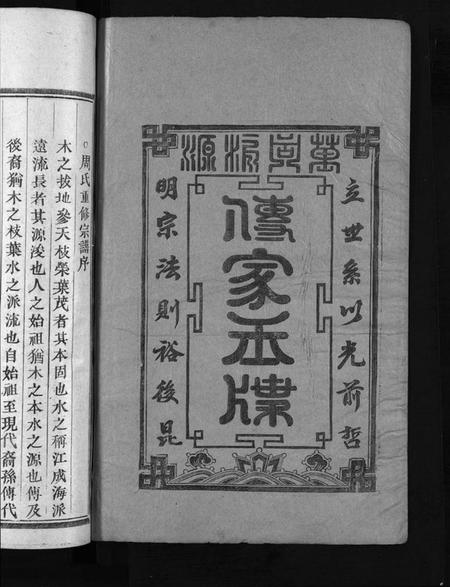 萬派源
立世系以光前哲
傳家玉牒
明宗法則裕後昆
○周氏重修宗譜序
木之拔地參天枝榮葉茂者其本固也水之稱江成海派
遠流長者其源浚也人之始祖猶木之本水之源也傳及
後裔猶木之枝葉水之派流也自始祖至現代裔孫傳代